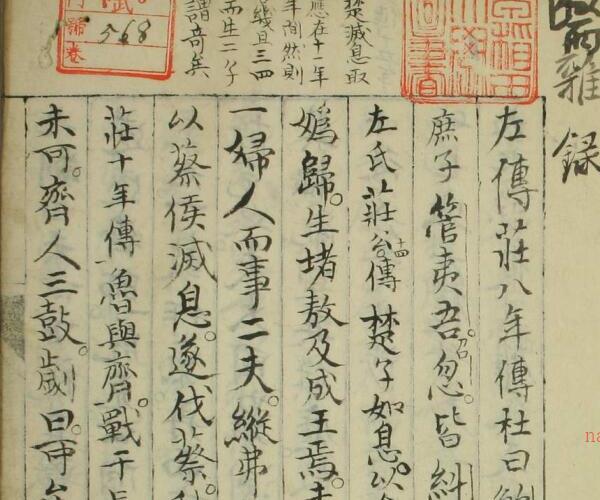 雜錄
左傳莊八年傳杜曰鮑
庶子管夷吾召忽皆糾
左氏莊公十四傳楚子如息以食
媯歸生堵敖及成王焉未
一婦人而事二夫縱弗
以蔡侯滅息遂伐蔡
莊十年傳魯與齊戰于長
未可齊人三鼓劌曰可矣
楚滅息取
應在十一年
年間然則
幾且三四
而生二子
謂奇矣
號
568
卷
na